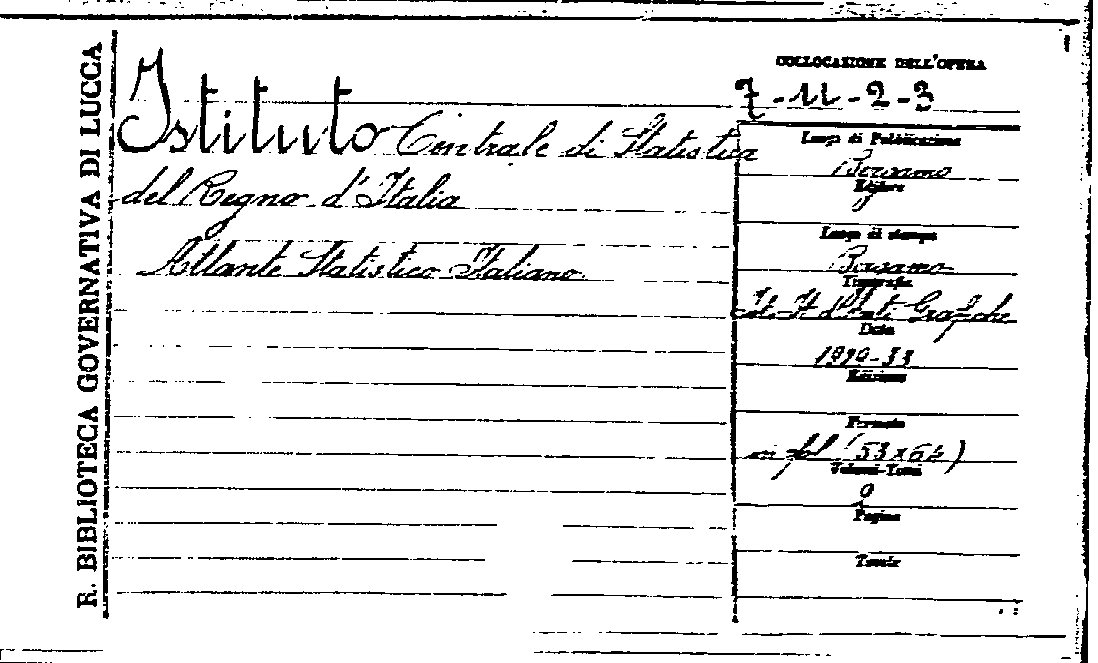 R. BIBLIOTECA GOVERNATIVA DI LUCCA
Istituto Centrale di Statistica
del Regno d'Italia
Atlante Statistico Italiano
COLLOCAZIONE DELL'OPERA
7-11-2-3
Luogo di Pubblicazione
Bergamo
Editore
Luogo di stampa
Bergamo
Tipografia
Ist. It. d'Arti Grafiche
Data
Edizione
Formato
in fol (53x64)
Volumi-Tomi
Pagine